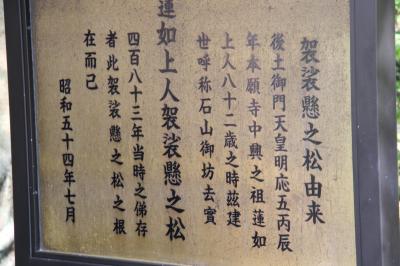 袈裟懸之松由来
後土御門天皇明応五丙辰
年本願寺中興之祖蓮如
上人八十二歳之時茲建
世呼称石山御坊去實
四百八十三年当時之佛存
者此袈裟懸之松之根
在而已
昭和五十四年七月
蓮如上人袈裟懸之松